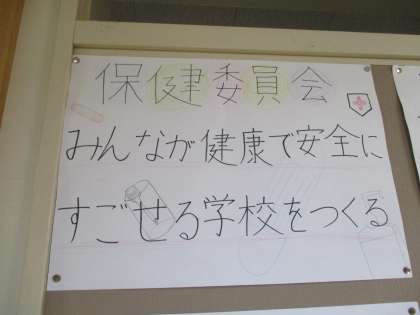 保健委員会
みんなが健康で安全に
すごせる学校をつくる